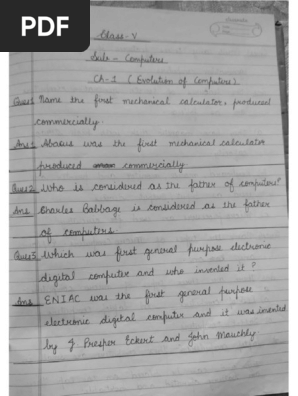 PDF
Class - V
Sub:- Computers
CH-1 (Evolution of Computers)
Ques1 Name the first mechanical calculator, produced
commercially
Ans1 Abacus was the first mechanical calculator
produced commercially
Ques2 Who is considered as the father of computers?
Ans Charles Babbage is considered as the father
of computers.
Ques3 Which was first general purpose electronic
digital computer and who invented it?
Ans ENIAC was the first general purpose
electronic digital computer and it was invented
by J Presper Eckert and John Mauchly